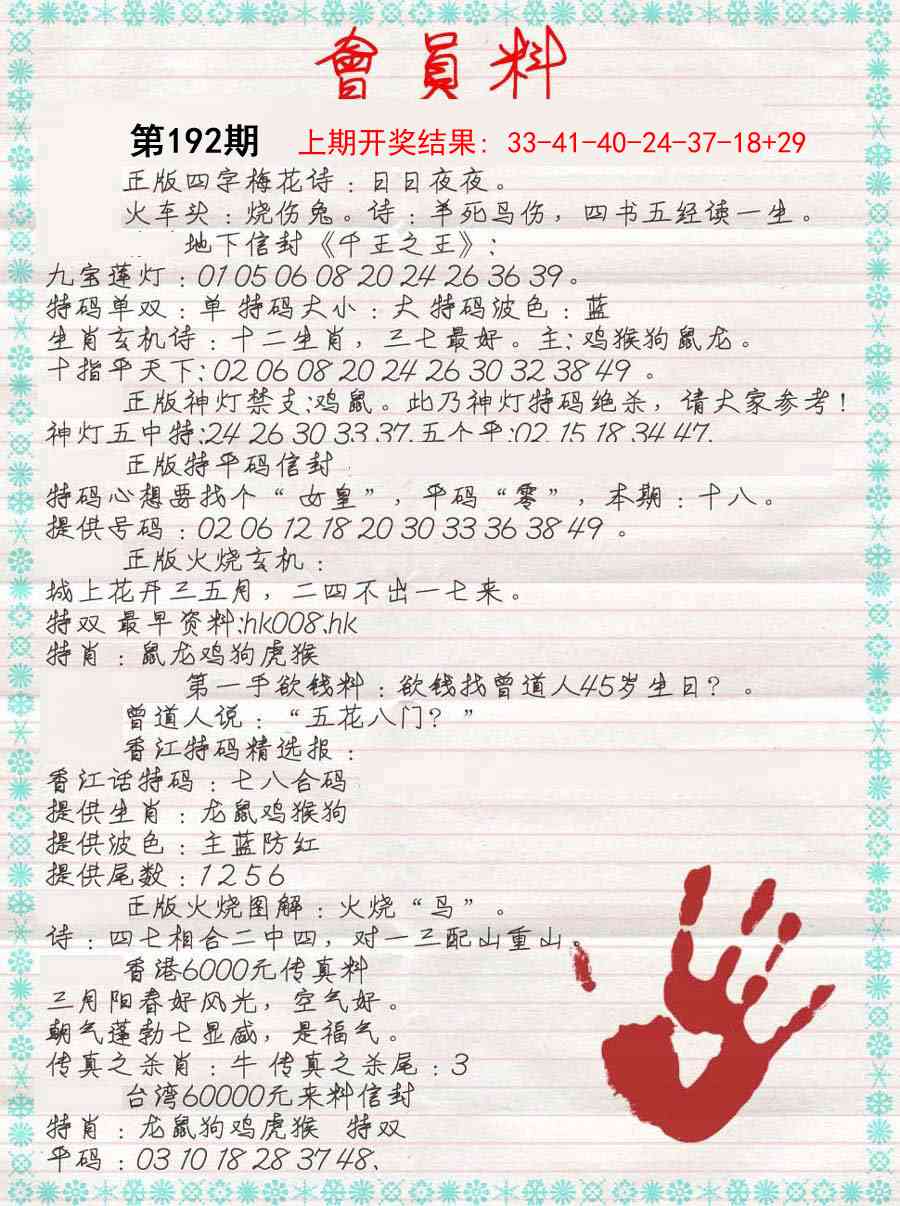 會員料
第192期 上期开奖结果：33-41-40-24-37-18+29
正版四字梅花诗：日日夜夜。
火车头：烧伤兔。诗：羊死鸟伤，四书五经读一生。
地下信封《千王之王》：
九宝莲灯：01 05 06 08 20 24 26 36 39。
特码单双：单 特码大小：大 特码波色：蓝
生肖玄机诗：十二生肖，三七最好。主：鸡猴狗鼠龙。
十指平天下：02 06 08 20 24 26 30 32 38 49 。
正版神灯禁支：鸡鼠。此乃神灯特码绝杀，请大家参考！
神灯五中特：24 26 30 33 37. 五个平：02. 15 18 34 47.
正版特平码信封
特码心想要找个“ 女皇”，平码“零”，本期：十八。
提供号码：02 06 12 18 20 30 33 36 38 49 。
正版火烧玄机：
城上花开三五月，二四不出一七来。
特双 最早资料:hk008.hk
特肖：鼠龙鸡狗虎猴
第一手欲钱料：欲钱找曾道人45岁生日？。
曾道人说：“五花八门？”
香江特码精选报：
香江话特码：七八合码
提供生肖：龙鼠鸡猴狗
提供波色：主蓝防红
提供尾数：1 2 5 6
正版火烧图解：火烧“鸟”。
诗：四七相合二中四，对一三配山重山。
香港6000元传真料
三月阳春好风光，空气好。
朝气蓬勃七显威，是福气。
传真之杀肖：牛 传真之杀尾：3
台湾60000元来料信封
特肖：龙鼠狗鸡虎猴 特双
平码：03 10 18 28 37 48、